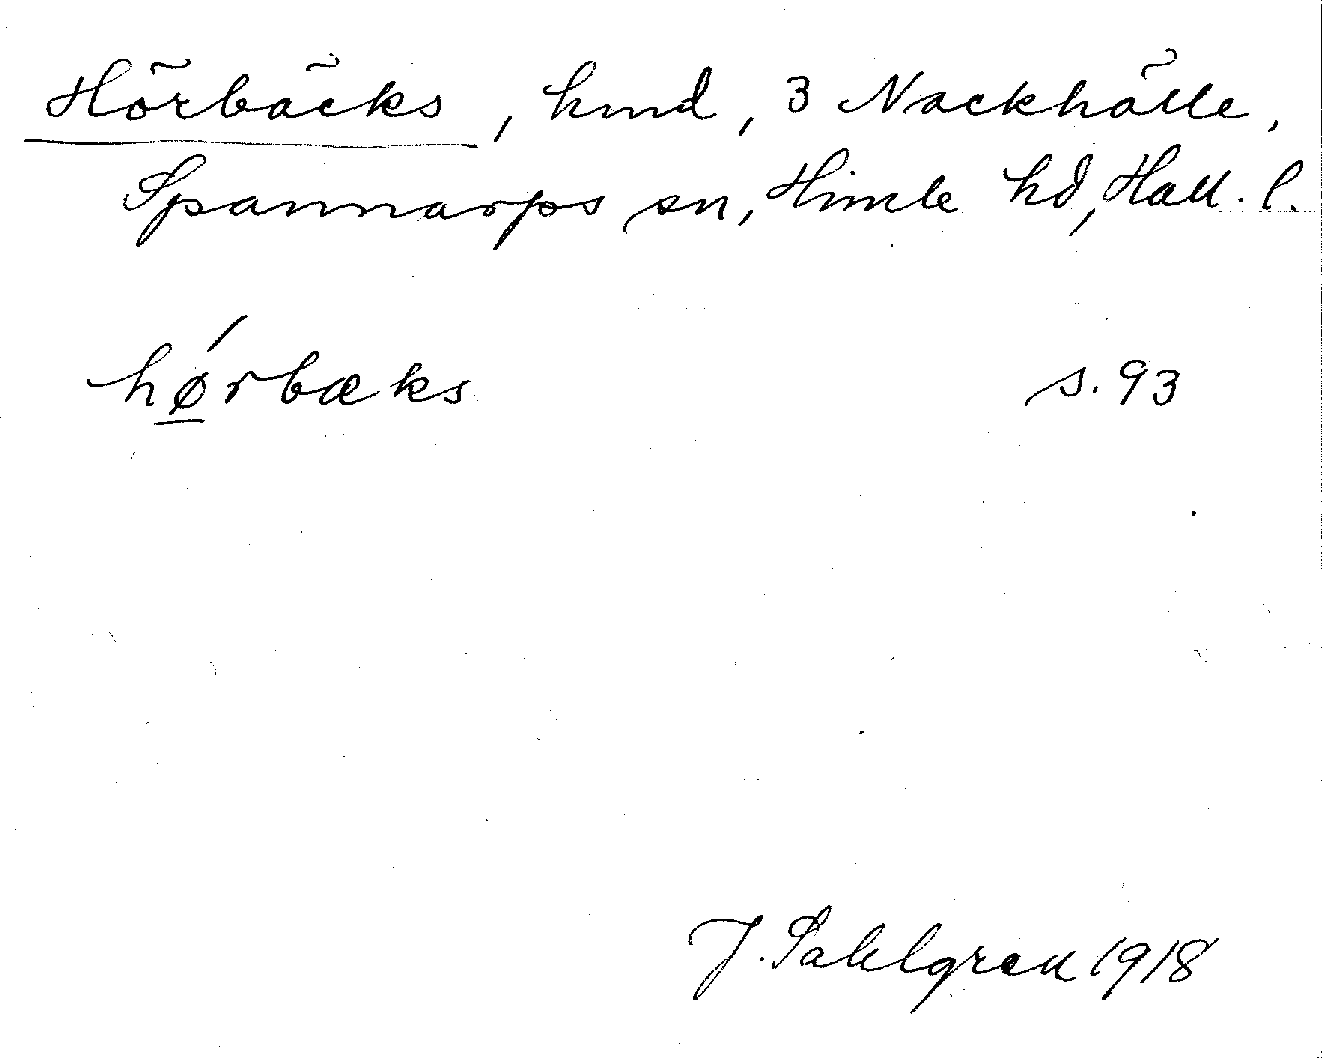 Hörbäcks, hmd, 3 Nackhälle,
Spannarps sn, Himle hd, Hall. l.
hǿ̲rbæks s. 93
J. Sahlgren 1918